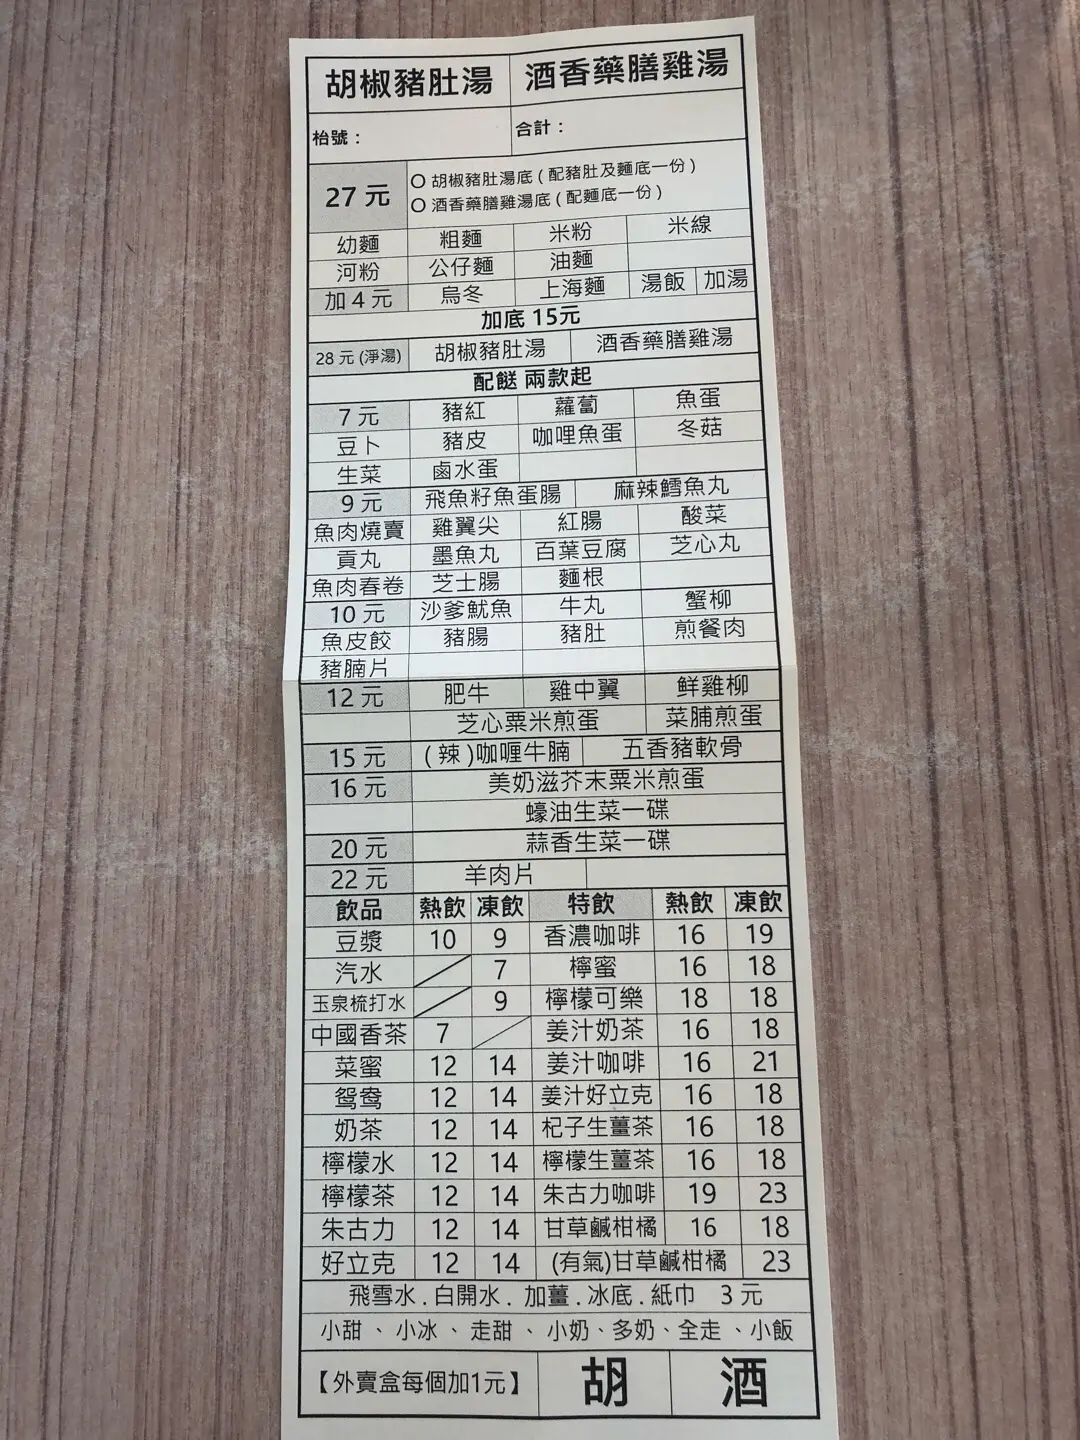 胡椒豬肚湯 酒香藥膳雞湯
枱號： 合計：
27 元 O 胡椒豬肚湯底 ( 配豬肚及麵底一份 )
O 酒香藥膳雞湯底 ( 配麵底一份 )
幼麵 粗麵 米粉 米線
河粉 公仔麵 油麵
加 4 元 烏冬 上海麵 湯飯 加湯
加底 15元
28 元 (淨湯) 胡椒豬肚湯 酒香藥膳雞湯
配餸 兩款起
7 元 豬紅 蘿蔔 魚蛋
豆卜 豬皮 咖哩魚蛋 冬菇
生菜 鹵水蛋
9 元 飛魚籽魚蛋腸 麻辣鱈魚丸
魚肉燒賣 雞翼尖 紅腸 酸菜
貢丸 墨魚丸 百葉豆腐 芝心丸
魚肉春卷 芝士腸 麵根
10 元 沙爹魷魚 牛丸 蟹柳
魚皮餃 豬腸 豬肚 煎餐肉
豬腩片
12 元 肥牛 雞中翼 鮮雞柳
芝心粟米煎蛋 菜脯煎蛋
15 元 ( 辣 )咖喱牛腩 五香豬軟骨
16 元 美奶滋芥末粟米煎蛋
蠔油生菜一碟
20 元 蒜香生菜一碟
22 元 羊肉片
飲品 熱飲 凍飲 特飲 熱飲 凍飲
豆漿 10 9 香濃咖啡 16 19
汽水 7 檸蜜 16 18
玉泉梳打水 9 檸檬可樂 18 18
中國香茶 7 姜汁奶茶 16 18
菜蜜 12 14 姜汁咖啡 16 21
鴛鴦 12 14 姜汁好立克 16 18
奶茶 12 14 杞子生薑茶 16 18
檸檬水 12 14 檸檬生薑茶 16 18
檸檬茶 12 14 朱古力咖啡 19 23
朱古力 12 14 甘草鹹柑橘 16 18
好立克 12 14 (有氣)甘草鹹柑橘 23
飛雪水 . 白開水 . 加薑 . 冰底 . 紙巾 3 元
小甜 、 小冰 、 走甜 、 小奶、多奶、全走 、小飯
【外賣盒每個加1元】 胡 酒